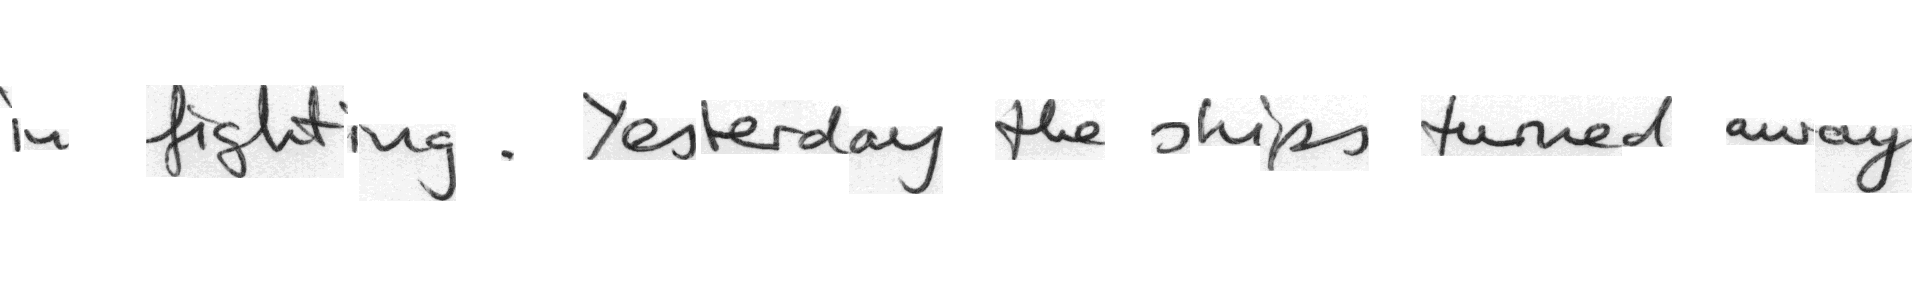 in fighting . Yesterday the ships turned away